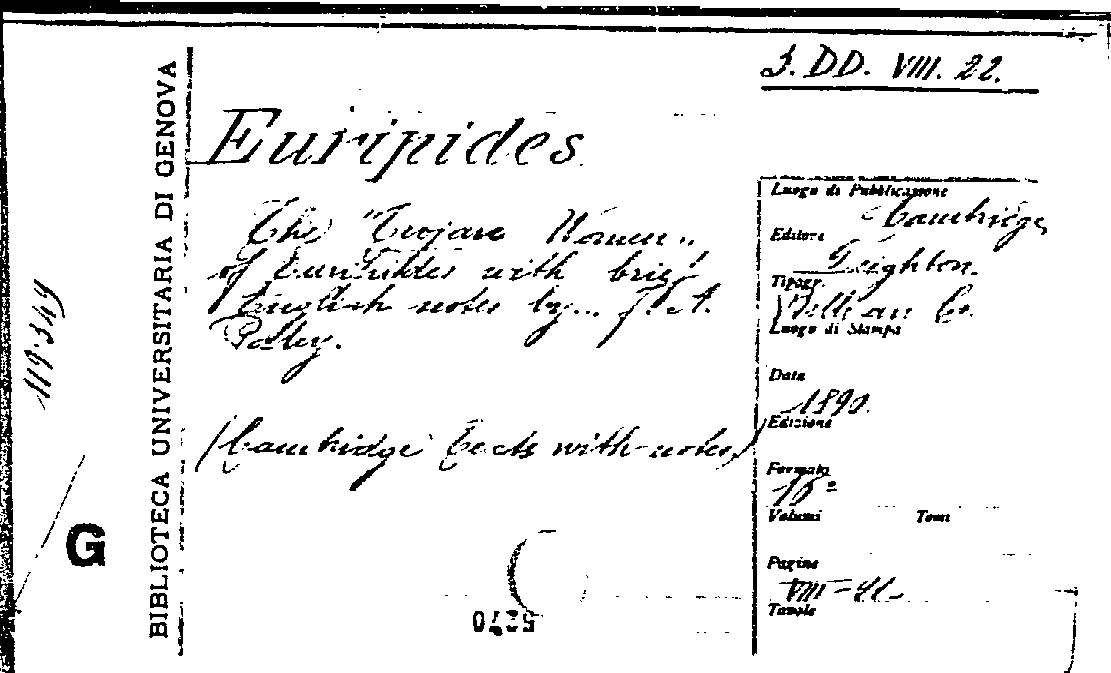 3. DD. VIII. 22.
Euripides
The "Trojan Women"
of Euripides with brief
English notes by... F. A.
Paley.
(Cambridge texts with notes)
BIBLIOTECA UNIVERSITARIA DI GENOVA
119349
G
Luogo di Pubblicazione
Cambridge
Editore
Deighton
Tipogr.
Luogo di Stampa
Data
1890.
Edizione
Formato
Volumi Tomi
Pagine
VIII-
Tavole